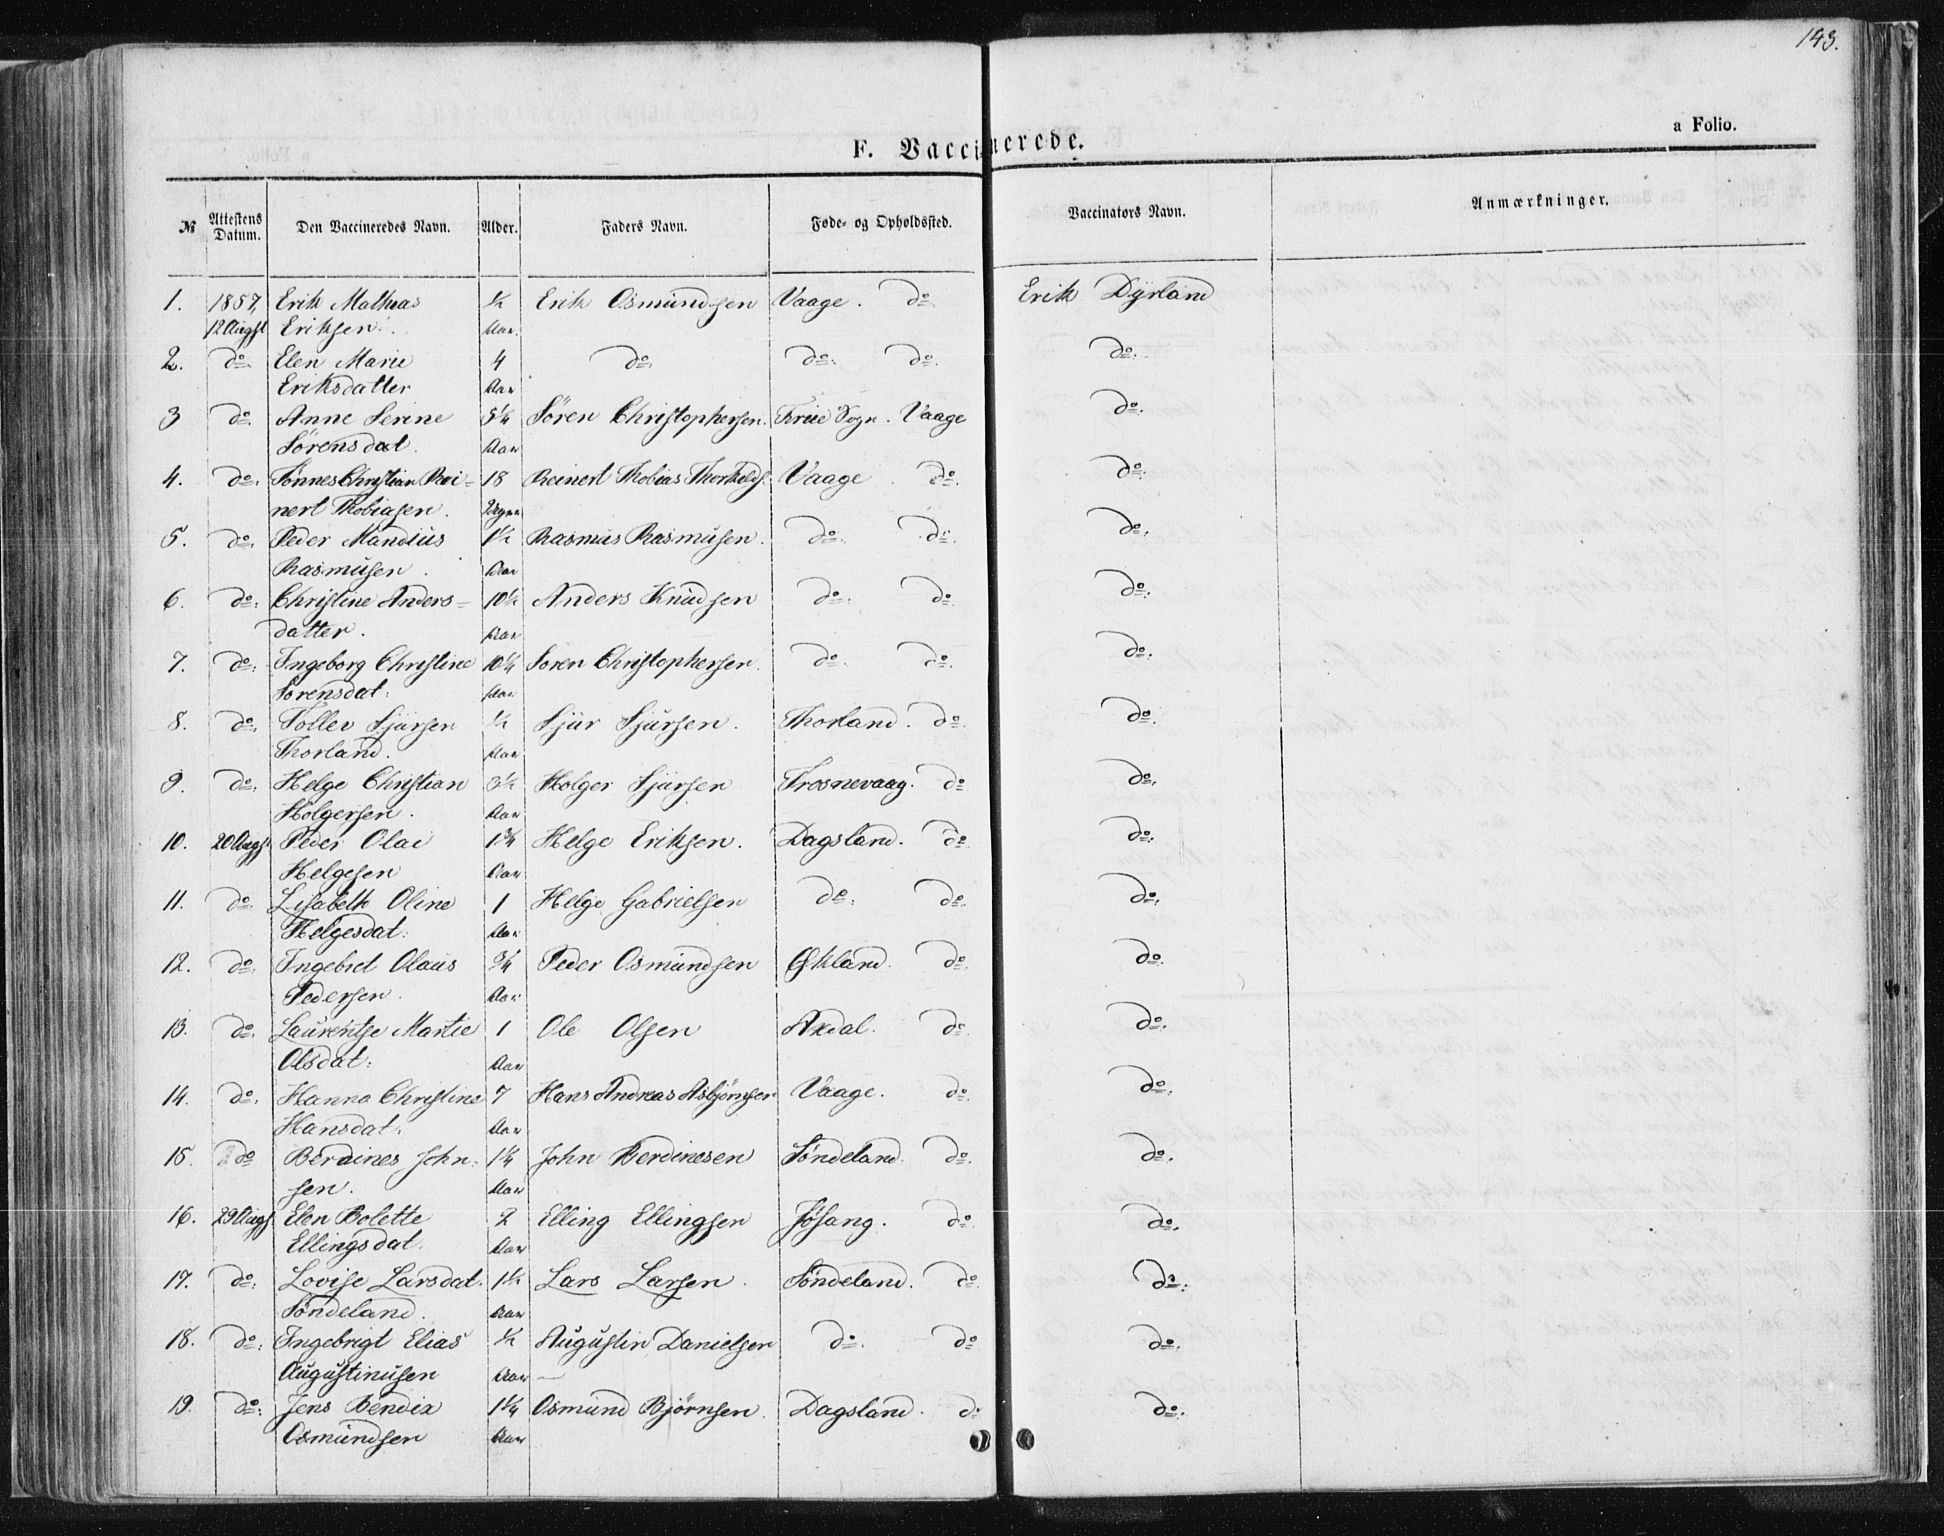 143.
a Folio.
F. Vaccinerede.
№ Attestens Datum. Den Vaccineredes Navn. Alder. Faders Navn. Føde- og Opholdssted. Vaccinators Navn. Anmærkninger.
1. 1857, Erik Mathias ½ Erik Osmundsen Vaage. do Erik Dyrland
12 Augst Eriksen. Aar.
2. do. Elen Marie 4 do do. do. do.
Eriksdatter Aar
3 do. Anne Serine 5¼ Sören Christophersen. Frue Sogn. Vaage do.
Sörensdat. Aar
4. do. Tönnes Christian Rei- 18 Reinert Thobias Thorkelds. Vaage do. do.
nert Thobiasen.
5. do. Peder Mandius 1½ Rasmus Rasmusen. do. do. do.
Rasmusen. Aar
6. do. Christine Anders- 10½ Anders Knudsen do. do. do.
datter. Aar
7. do. Ingeborg Christine 10¼ Soren Christophersen. do. do. do.
Sorensdat: Aar
8. do. Tollev Sjursen ½ Sjur Sjursen. Thorland. do. do.
Thorland. Aar
9. do. Helge Christian 3½ Holger Sjursen Frosnevaag. do do.
Holgersen. Aar
10. 20 Augst Peder Olai 1¾ Helge Eriksen. Dagsland. do do.
Helgesen Aar
11. do. Lisabeth Oline 1 Helge Gabrielsen do. do. do.
Helgesdat: Aar
12. do. Ingebret Olaus ¾ Peder Osmundsen Økland. do. do.
Pedersen. Aar
13. do. Laurentse Martie 1 Ole Olsen Axdal. do. do.
Olsdat: Aar
14. do. Hanna Christine 7 Hans Andreas Asbjörnsen Vaage. do. do.
Hansdat. Aar
15. do Berdines John- 1¼ John Berdinesen Söndeland. do. do.
sen. Aar
16. 29 Augst Elen Bolette 2 Elling Ellingsen Jösang. do. do.
Ellingsdat. Aar
17. do. Lovise Larsdat. 1½ Lars Larsen. Söndeland. do. do.
Söndeland. Aar
18. do. Ingebrigt Elias ½ Augustin Danielsen do. do do.
Augustinusen Aar
19. do. Jens Bendix 1¼ Osmund Bjørnsen. Dagsland. do do.
Osmundsen Aar